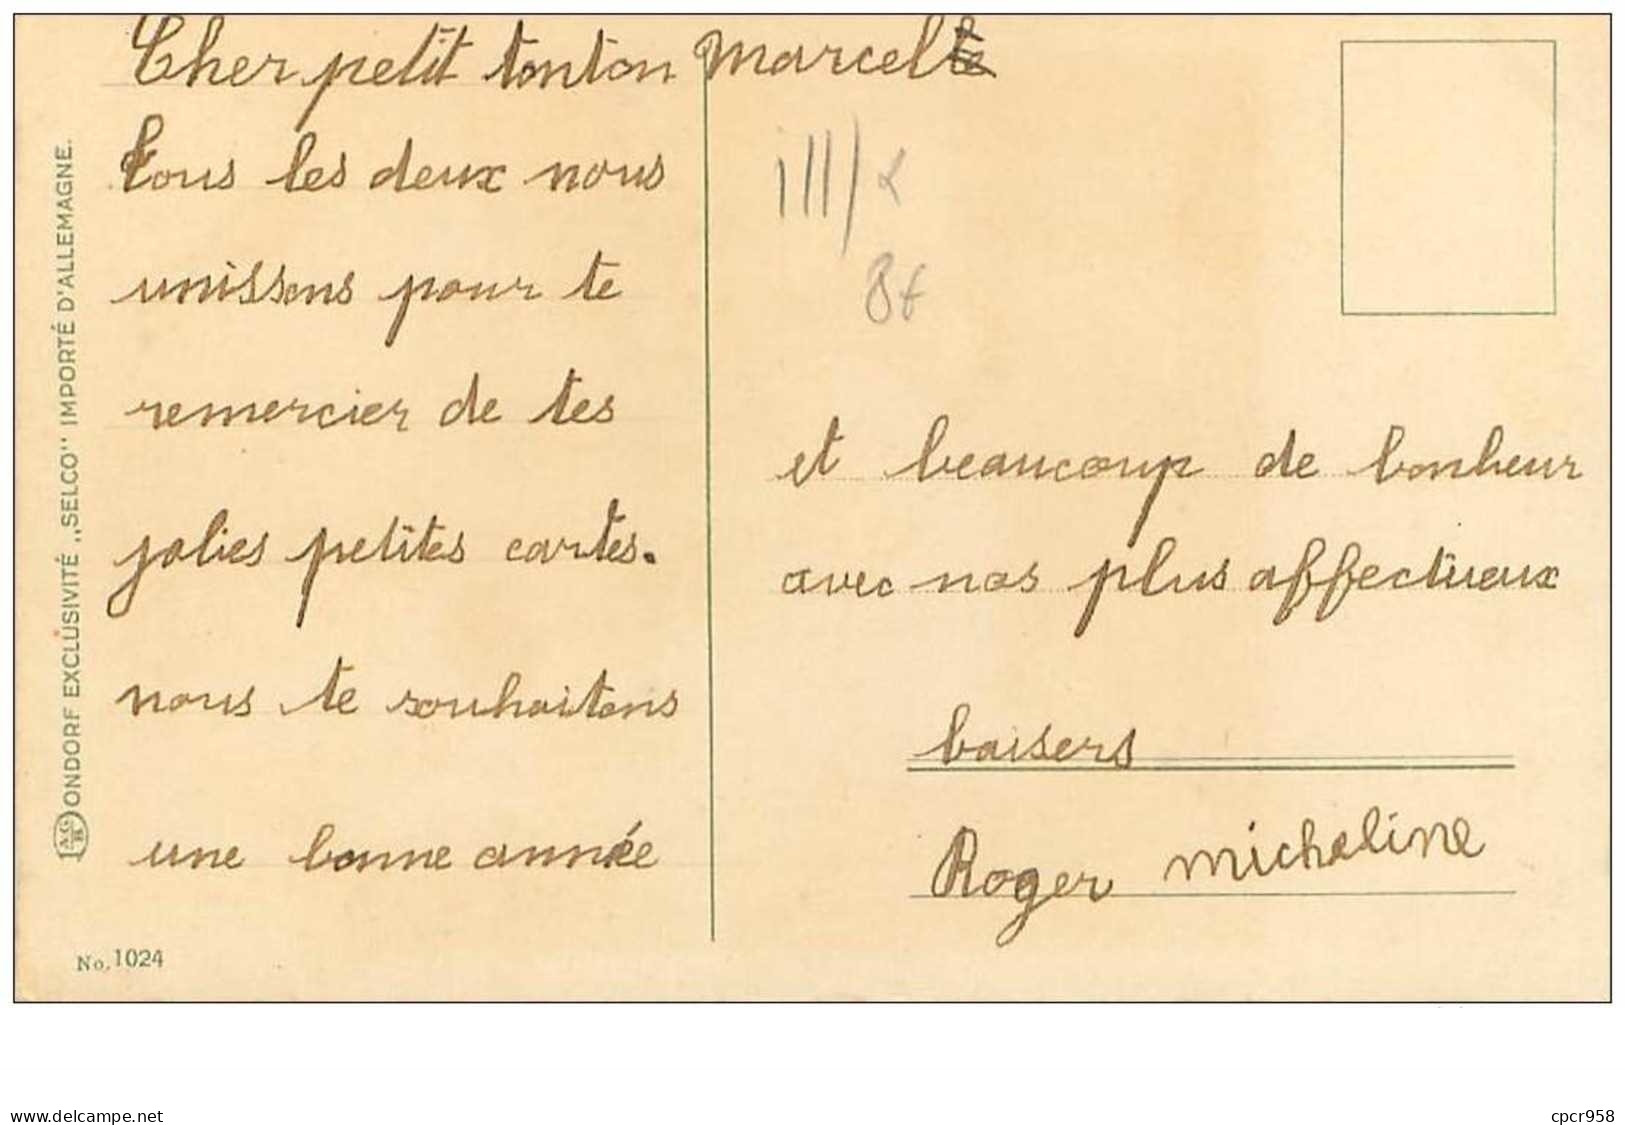 Cher petit tonton Marcel
tous les deux nous
unissons pour te
remercier de tes
jolies petites cartes.
nous te souhaitons
une bonne année
et beaucoup de bonheur
avec nos plus affectueux
baisers
Roger micheline
ONDORF EXCLUSIVITÉ „SELCO" IMPORTÉ D'ALLEMAGNE.
No. 1024
www.delcampe.net
cpcr958